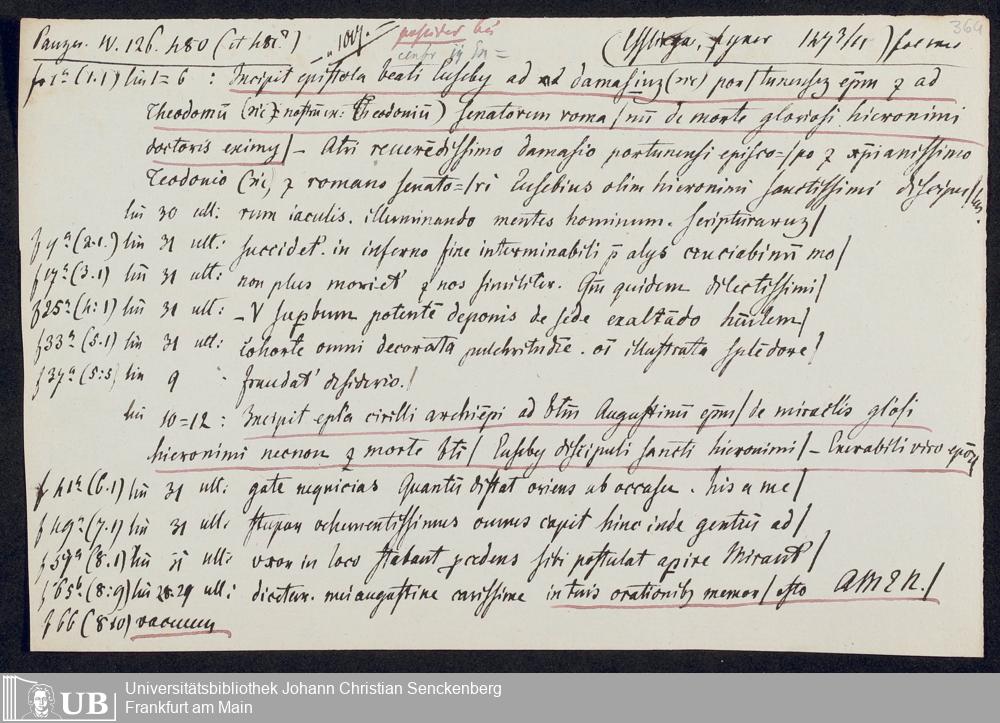 Panzer. IV. 126. 480 (et 481?) 1007.
364
f 1ª (1.1) lin 1=6 : Incipit epistola beati Euseby ad damasiuz (sic) por/tunensez epm ⁊ ad
Theodomu senatorem roma/nu de morte gloriosi hieronimi
doctoris eximy/ – Atri reueredissimo damasio portunensi episco=/po ⁊ xpianissimo
Teodonio (sic) ⁊ romano senato=/ri Eusebius olim hieronimi sanctissimi discipu/lus.
lin 30 ult: rum iaculis. illuminando mentes hominum. scripturaruz/
f 9ª (2.1.) lin 31 ult: succidet' in inferno sine interminabili p alys cruciabimu mo/
f 17ª (3.1) lin 31 ult: non plus moriet' ⁊ nos similiter. Qm quidem dilectissimi/
f 25ª (4:1) lin 31 ult: –V supbum potente deponis de sede exaltado humlem/
f 33ª (5.1) lin 31 ult: cohorte omni decorata pulchritudie. oi illustrata spledore/
f 37ª (5:5) lin 9 - fraudat' desiderio./
lin 10=12 : Incipit epla cirilli archiepi ad btm Augustinu epm/ de miraclis glosi
hieronimi necnon ⁊ morte bti/ Euseby discipuli sancti hieronimi/ – Enerabili viro
f 41ª (6.1) lin 31 ult: gate nequicias Quantu distat oriens ab occasu. his a me/
f 49ª (7.1) lin 31 ult: stupor vehementissimus omnes cepit hinc inde gentiu ad/
f 57ª (8.1) lin 31 ult: uxon in loco stabant pcedens sibi postulat apire Mirant'/
f 65b (8:9) lin 28.29 ult: dicetur. mi augustine carissime in tuis orationibz memor/ esto AMEN./
f 66 (8.10) vacuum
UB Universitätsbibliothek Johann Christian Senckenberg
Frankfurt am Main